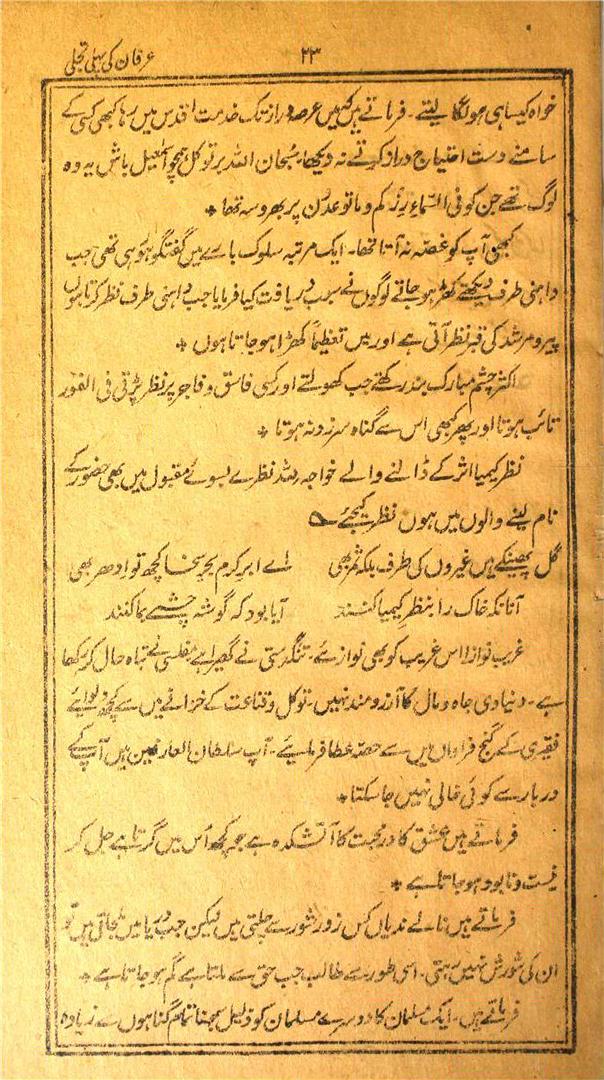 ۲۳
عرفان کی پہلی تجلی
خواہ کیسا ہی ہو لگا لیتے۔ فرماتے ہیں کہ میں عرصہ دراز تک خدمت اقدس میں رہا کبھی کسی کے
سامنے دست احتیاج دراز کرتے نہ دیکھا، سبحان اللہ بر توکل ہمچو اسمٰعیل باش یہ وہ
لوگ تھے جن کو فی السماء رزقکم وما توعدون پر بھروسہ تھا ٭
کبھی آپ کو غصہ نہ آتا تھا۔ ایک مرتبہ سلوک بارے میں گفتگو ہو رہی تھی جب
داہنی طرف دیکھتے کھڑے ہو جاتے لوگوں نے سبب دریافت کیا فرمایا جب داہنی طرف نظر کرتا ہوں
پیر و مرشد کی قبر نظر آتی ہے اور میں تعظیماً کھڑا ہو جاتا ہوں ٭
اکثر چشم مبارک بند رکھتے جب کھولتے اور کسی فاسق و فاجر پر نظر پڑتی فی الفور
تائب ہوتا اور پھر کبھی اس سے گناہ سرزد نہ ہوتا ٭
نظر کیمیا اثر کے ڈالنے والے خواجہ للہ نظرے بسوئے مقبول میں بھی حضور کے
نام لینے والوں میں ہوں نظر کیجئے
گل پھینکے ہیں غیروں کی طرف بلکہ ثمر بھی اے ابر کرم بحر سخا کچھ تو ادھر بھی
آنانکہ خاک را بنظر کیمیا کنند آیا بود کہ گوشہ چشمے بما کنند
غریب نواز! اس غریب کو بھی نوازئے۔ تنگدستی نے گھیرا ہے مفلسی نے تباہ حال کر رکھا
ہے۔ دنیاوی جاہ و مال کا آرزومند نہیں۔ توکل و قناعت کے خزانے میں سے کچھ دلوائیے
فقیری کے گنج فراواں میں سے حصہ عطا فرمائیے۔ آپ سلطان العارفین ہیں آپ کے
دربار سے کوئی خالی نہیں جا سکتا ٭
فرماتے ہیں عشق کا در محبت کا آتشکدہ ہے جو کچھ اُس میں گرتا ہے جل کر
نیست و نابود ہو جاتا ہے ٭
فرماتے ہیں نالے ندیاں کس زور شور سے چلتی ہیں لیکن جب دریا میں مل جاتی ہیں تو
ان کی شورش نہیں رہتی۔ اسی طور سے طالب جب حق سے ملتا ہے گم ہو جاتا ہے ٭
فرماتے ہیں۔ ایک مسلمان کا دوسرے مسلمان کو ذلیل سمجھنا تمام گناہوں سے زیادہ